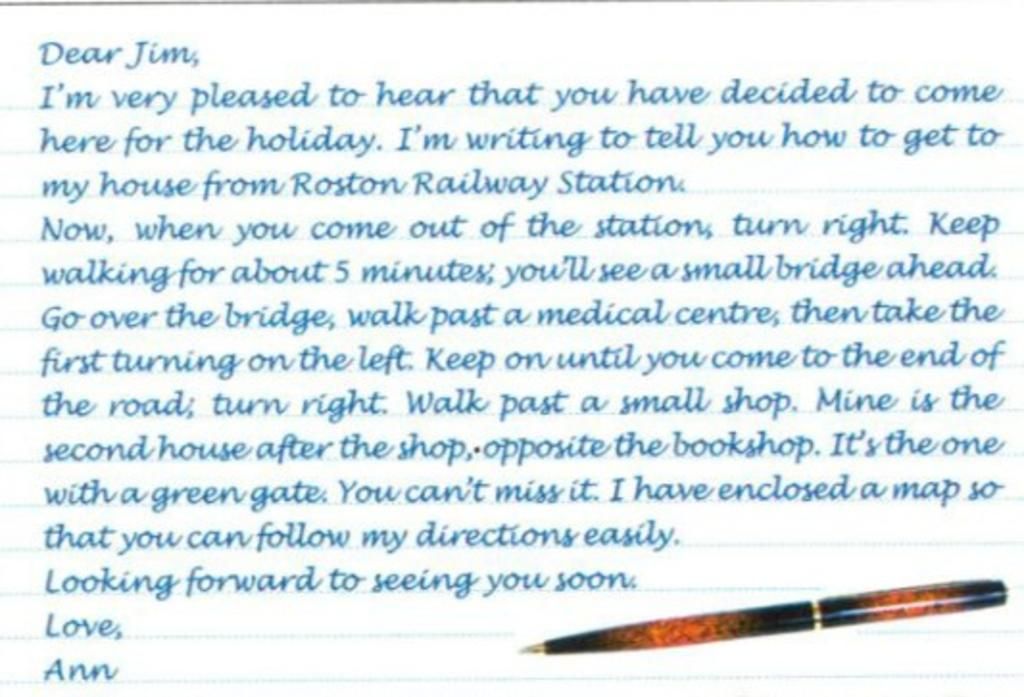 Dear Jim,
I'm very pleased to hear that you have decided to come
here for the holiday. I'm writing to tell you how to get to
my house from Roston Railway Station.
Now, when you come out of the station, turn right. Keep
walking for about 5 minutes; you'll see a small bridge ahead.
Go over the bridge, walk past a medical centre, then take the
first turning on the left. Keep on until you come to the end of
the road; turn right. Walk past a small shop. Mine is the
second house after the shop, opposite the bookshop. It's the one
with a green gate. You can't miss it. I have enclosed a map so
that you can follow my directions easily.
Looking forward to seeing you soon.
Love,
Ann